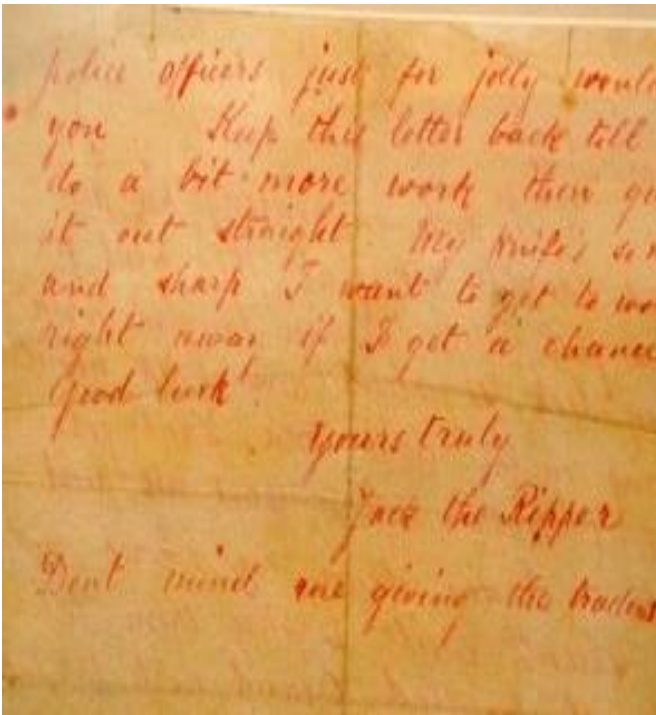 police officers just for jolly would
you Keep this letter back till
do a bit more work then
it out straight My Knife's so
and sharp I want to get to
right away if I get a chance
Good luck.
yours truly
Jack the Ripper
Dont mind me giving the trade